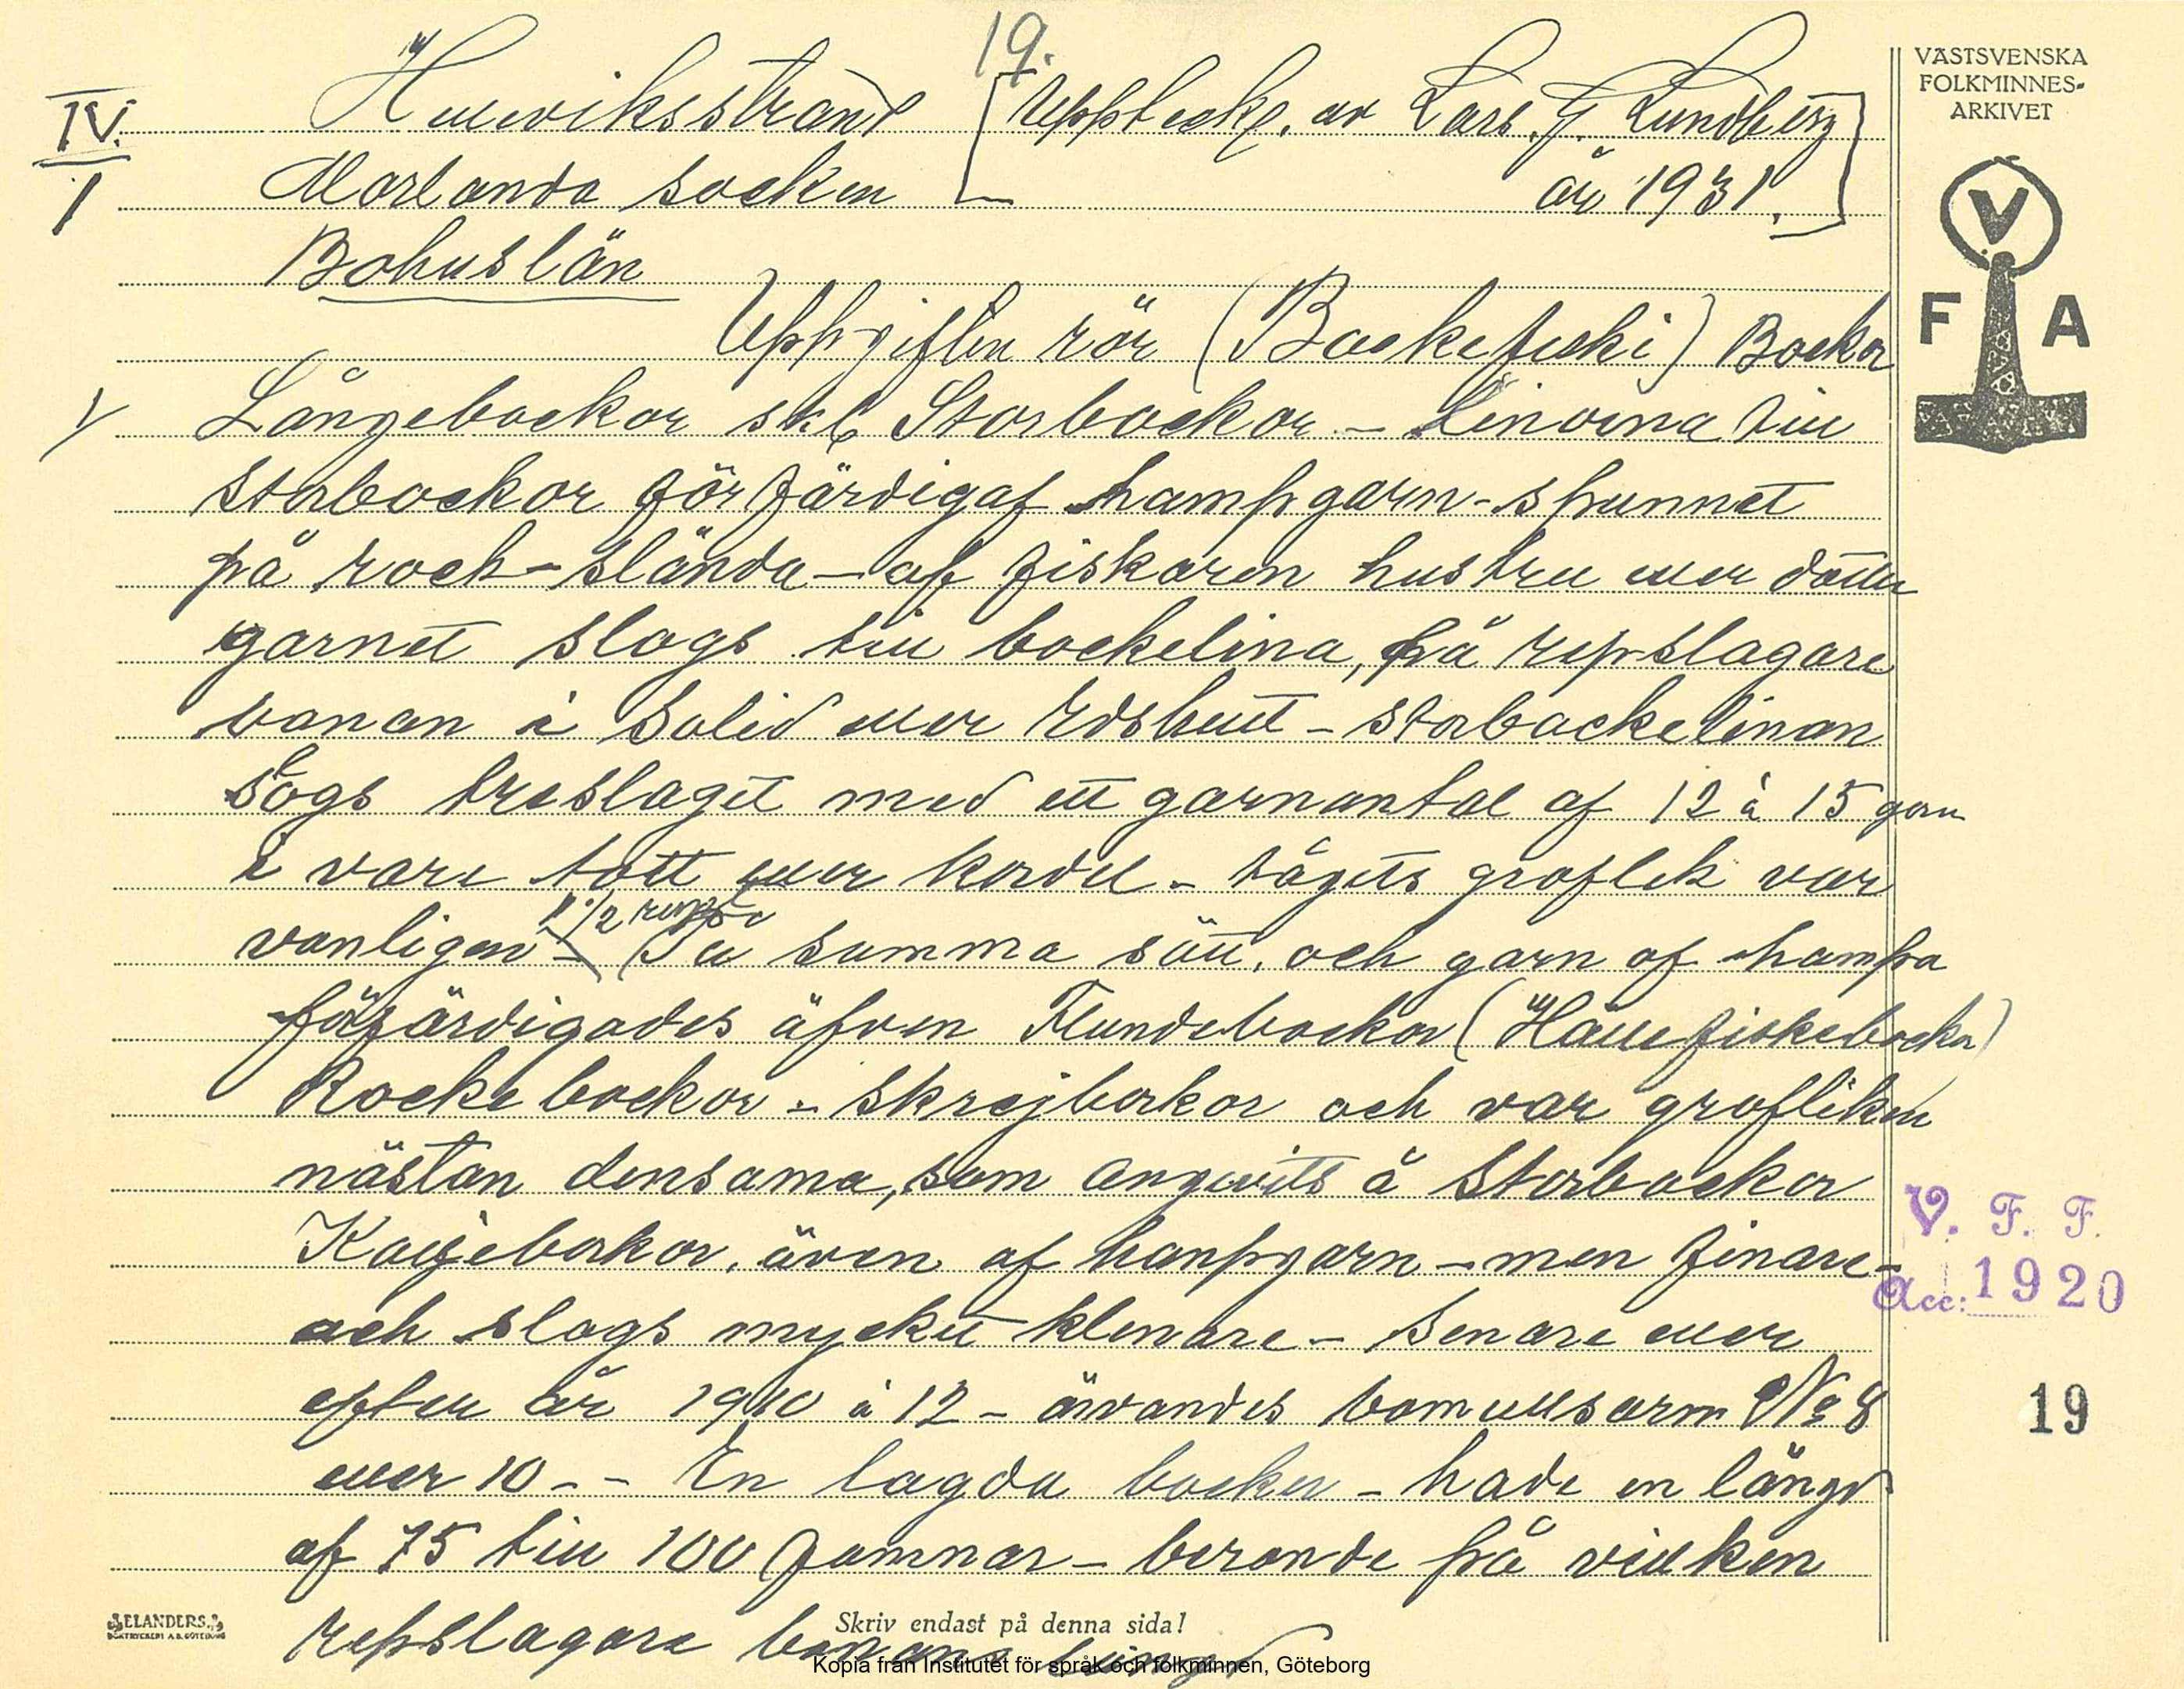 19.
IV.
1
Hellevikstrand
Morlanda socken
Bohuslän
[Uppteckn. av Lars. J. Lundberg
år 1931.]
VÄSTSVENSKA
FOLKMINNES-
ARKIVET
V
F A
Uppgiften rör (Backefiski) Backor
Långebackor skl Storbackor - Linorna till
storbackor förfärdigaf hampgarn - spunnet
på rock - slända - af fiskaren hustru eller dotter
garnet slogs till backelina, på repslagare
banan i Solid eller - storbackelinan
slogs treslaget med ett garnantal af 12 à 15 garn
i vare tott eller kordel - tågets groflek var
vanligen 1 1/2
På samma sätt, och garn af hampa
förfärdigades äfven Flundebackor (Hällefiskebackor)
Rockebackor - Skrejbackor och var grofleken
nästan densama, som angivits å Storbackor
Koljebackor, även af hampgarn - men finare -
och slogs mycket klenare - Senare eller
efter år 1910 à 12 - användes bomullsarm No 8
eller 10 - - En lagda backa - hade en längd
af 75 till 100 famnar - beronde på vilken
repslagare banans längd
V. F. F.
Acc: 1920
19
ELANDERS
BOKTRYCKERI A.B. GÖTEBORG
Skriv endast på denna sida!
Kopia från Institutet för språk och folkminnen, Göteborg